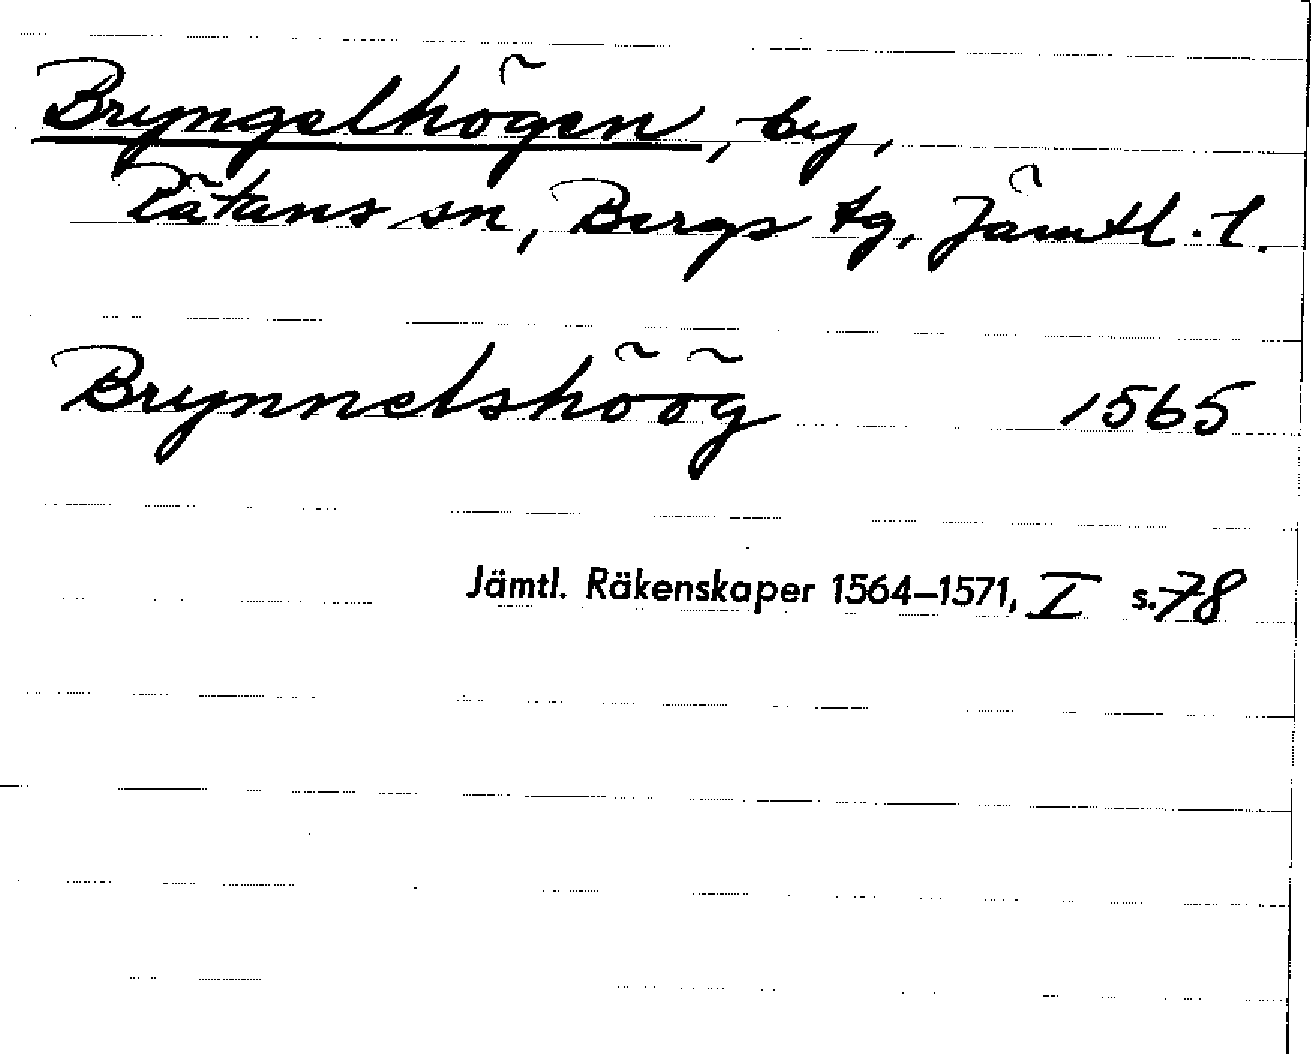 Bryngelhögen, by,
Rätans sn, Bergs tg, Jämtl. l.
Brynnelshöög 1565
Jämtl. Räkenskaper 1564–1571, I s. 78